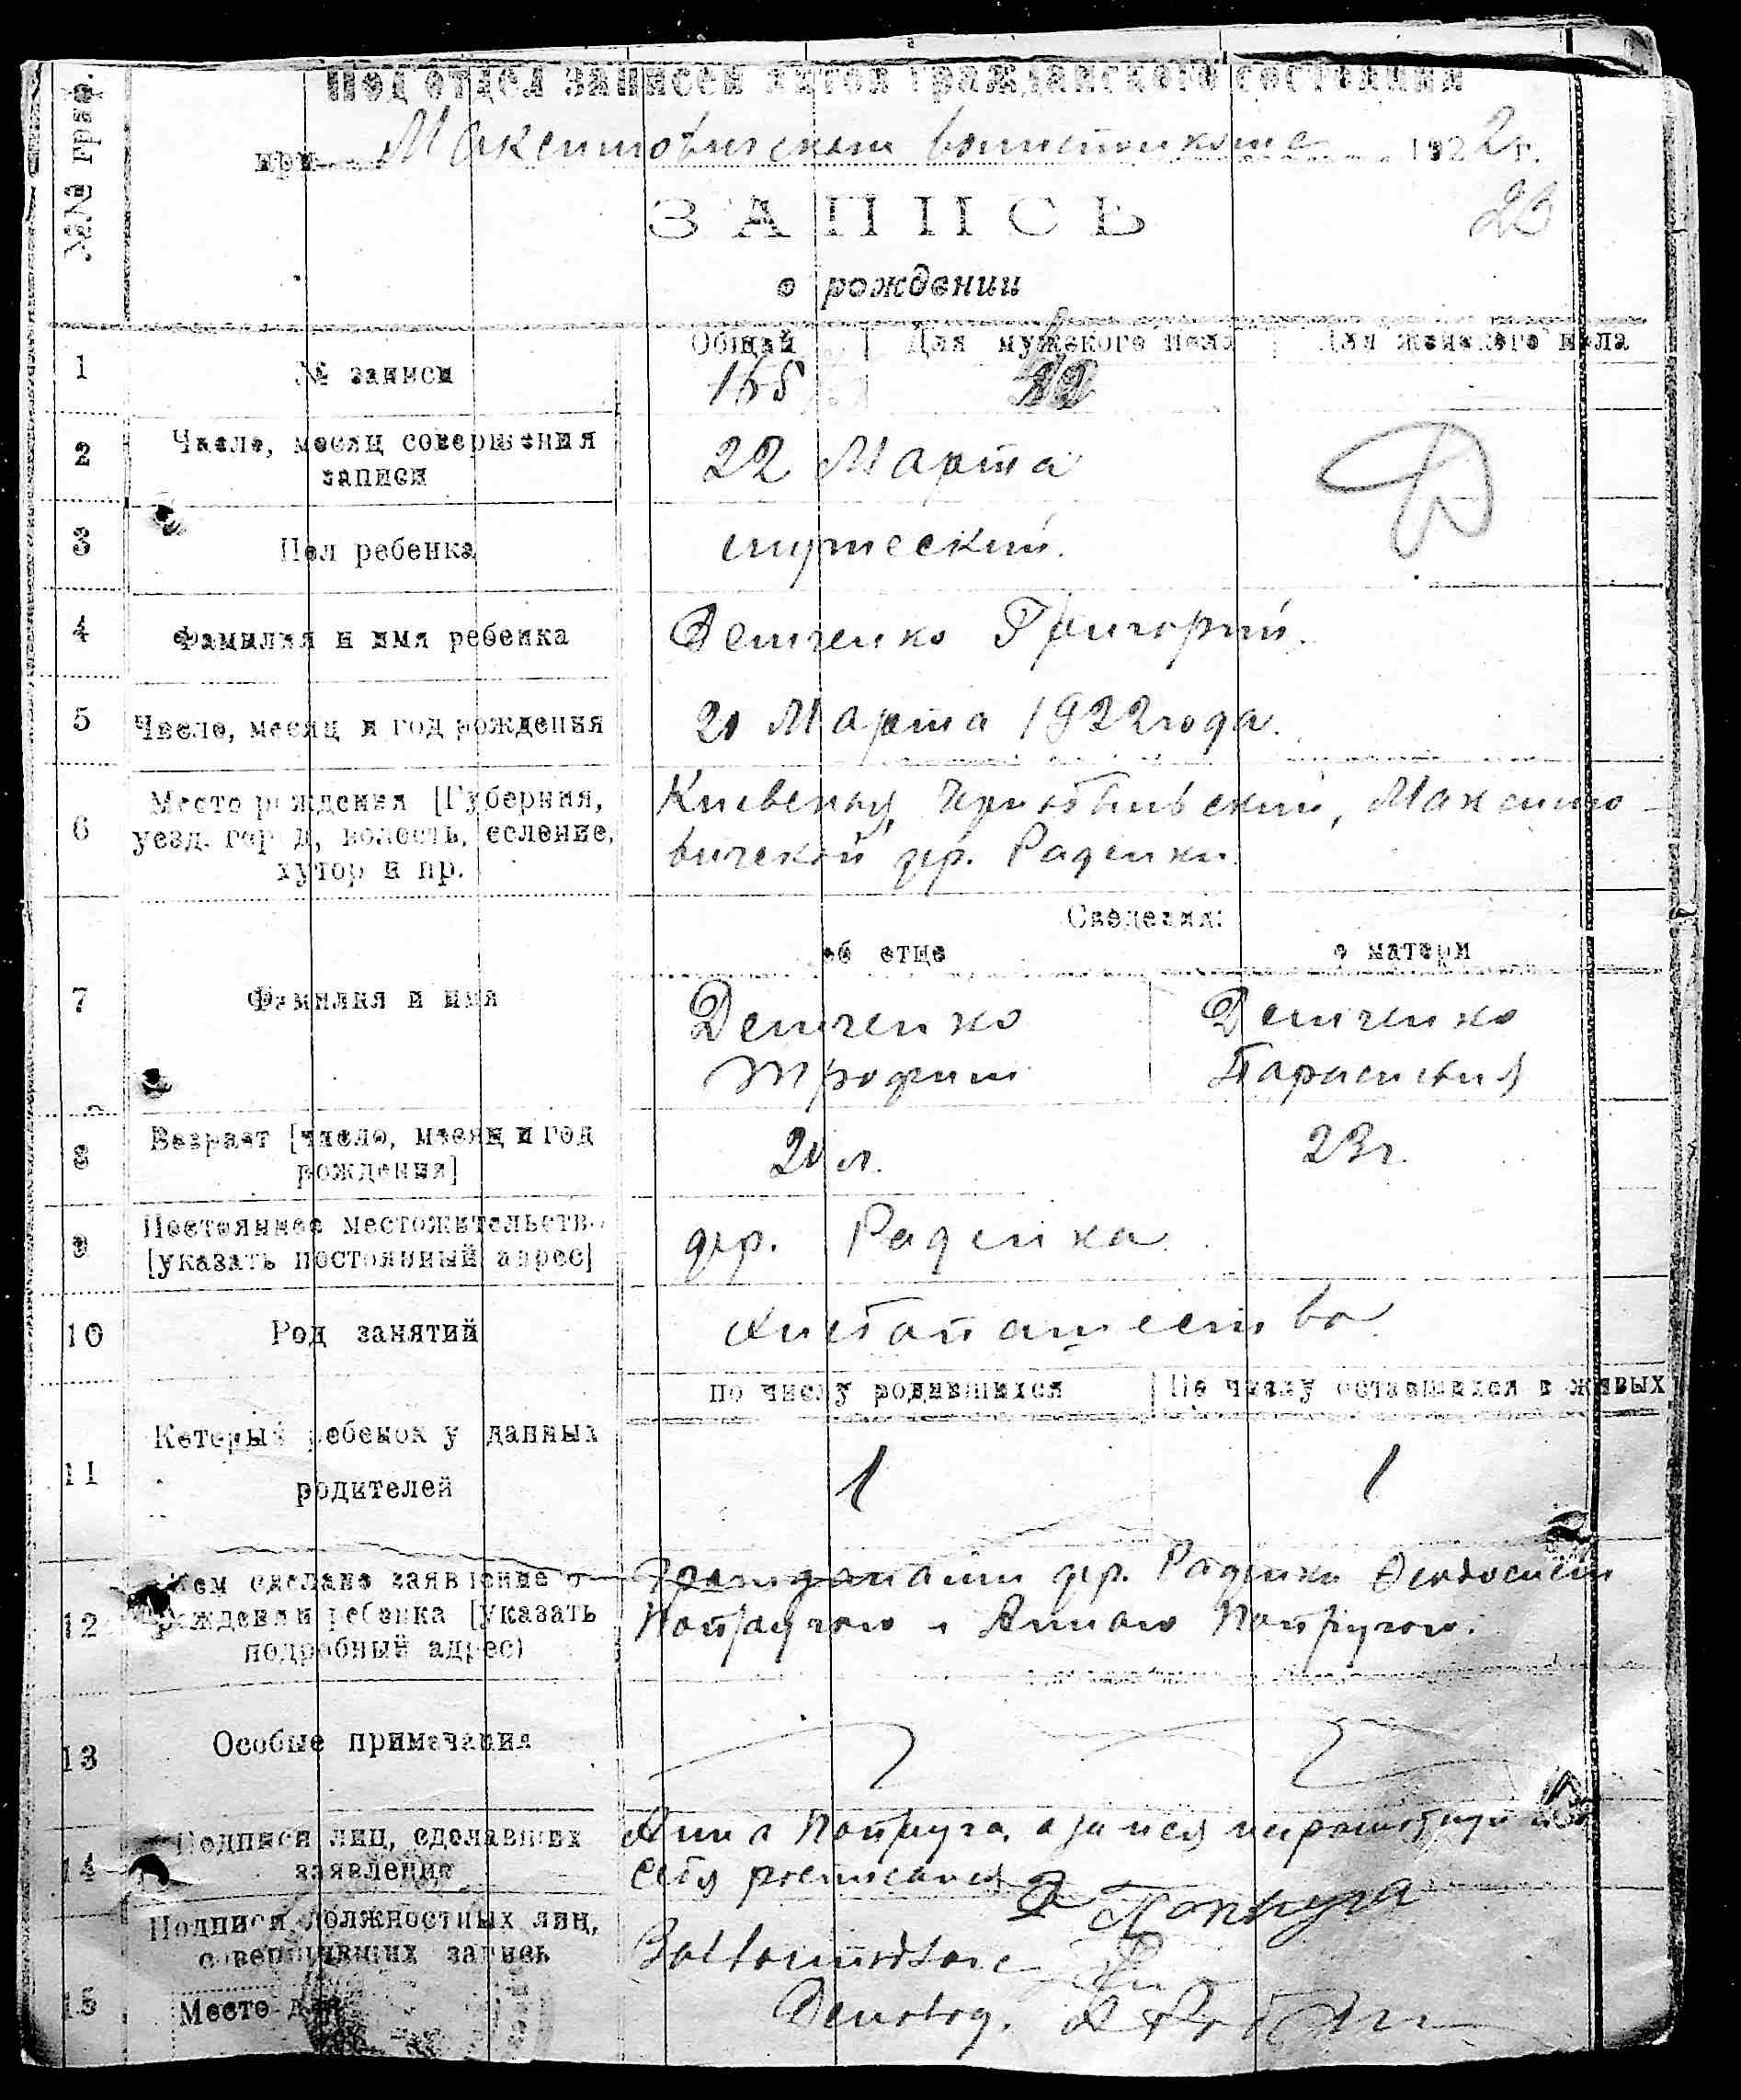 №№ граф.
Подотдел записей актов гражданского состояния
при Максимовическом волисполкоме 1922 г.
ЗАПИСЬ
о рождении
Общий Для мужского пола Для женского пола
1 № записи
2 Число, месяц совершения записи 22 Марта
3 Пол ребенка мужеский.
4 Фамилия и имя ребенка Демченко Григорий.
5 Число, месяц и год рождения Марта 1922 года.
6 Место рождения [Губерния, Киевской, Чернобыльский, Максимо-
уезд, город, волость, селение, вичской дер. Радинки
хутор и пр.
Сведения:
об отце о матери
7 Фамилия и имя Демченко Демченко
Трофим Параскевия
8 Возраст [число, месяц и год л. 23 г.
рождения]
9 Постоянное местожительство дер. Радинка.
[указать постоянный адрес]
10 Род занятий хлебопашество
По числу родившихся По числу оставшихся в живых
11 Который ребенок у данных 1 1
родителей
12 Кем сделано заявление о Гражданами дер. Радинки Феодосием
рождении ребенка [указать Попругою и Анною Попругою.
подробный адрес)
13 Особые примечания
14 Подписи лиц, сделавших Анна Попруга, а за нея неграмотную и за
заявление себя росписался Попруга
Подписи должностных лиц,
совершивших запись
15 Место для Делопр.